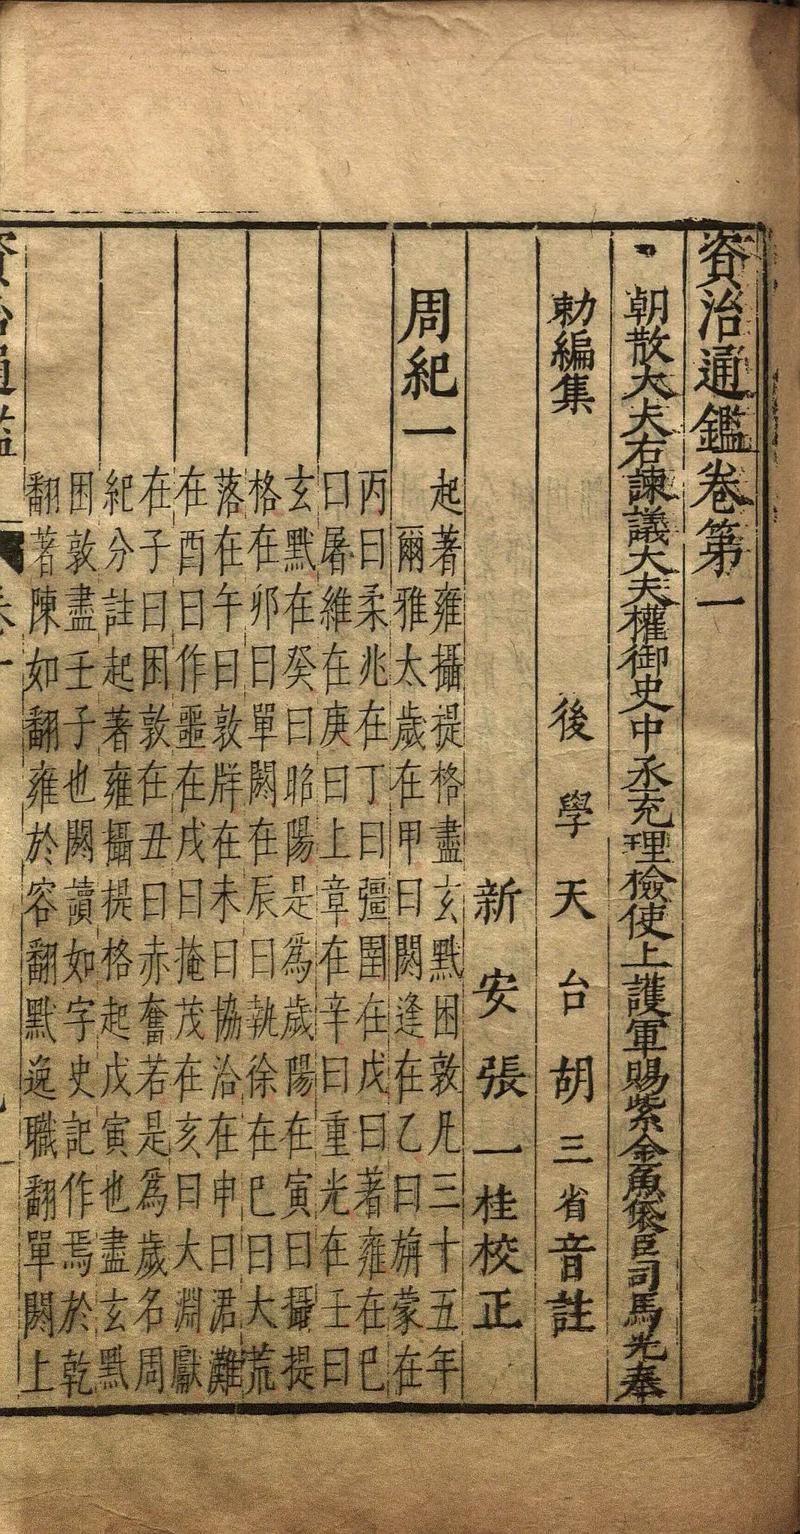 資治通鑑卷第一
朝散大夫右諫議大夫權御史中丞充理檢使上護軍賜紫金魚袋臣司馬光奉
勅編集 後學天台胡三省音註
新安張一桂校正
周紀一 起著雍攝提格盡玄黓困敦凡三十五年
爾雅太歲在甲曰閼逢在乙曰旃蒙在
丙曰柔兆在丁曰彊圉在戊曰著雍在巳
曰屠維在庚曰上章在辛曰重光在壬曰
玄黓在癸曰昭陽是爲歲陽在寅曰攝提
格在卯曰單閼在辰曰執徐在巳曰大荒
落在午曰敦牂在未曰協洽在申曰涒灘
在酉曰作噩在戌曰掩茂在亥曰大淵獻
在子曰困敦在丑曰赤奮若是爲歲名周
紀分註起著雍攝提格起戊寅也盡玄黓
困敦盡壬子也閼讀如字史記作焉於乾
翻著陳如翻雍於容翻黓逸職翻單閼上
資治通鑑